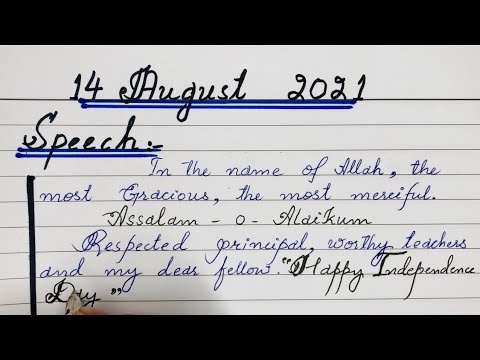 14 August 2021
Speech:-
In the name of Allah, the
most Gracious, the most merciful.
Assalam - o - Alaikum
Respected principal, worthy teachers
and my dear fellow. "Happy Independence
Day"